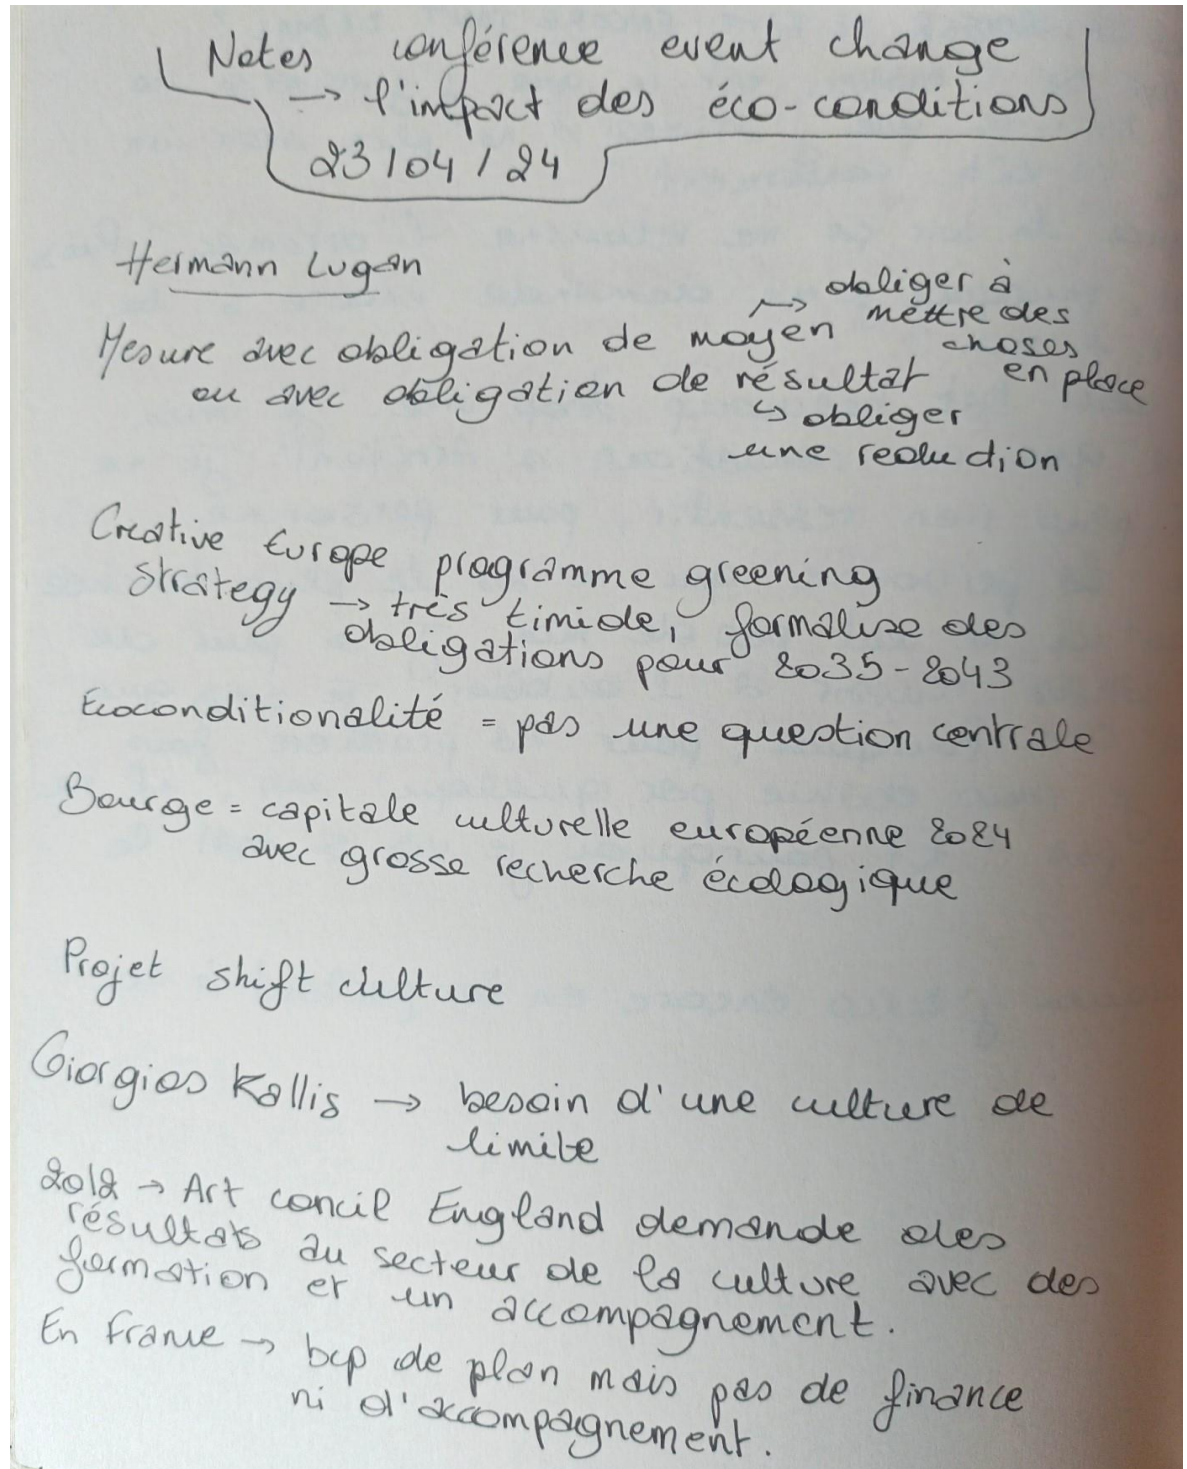 Notes conférence event change
→ l'impact des éco-conditions
23/04/24
Hermann Lugan
Mesure avec obligation de moyen → obliger à
mettre des
choses
en place
ou avec obligation de résultat
↳ obliger
une reduction
Creative Europe programme greening
strategy → très timide, formalise des
obligations pour 2035-2043
Ecoconditionalité = pas une question centrale
Bourge = capitale culturelle européenne 2024
avec grosse recherche écologique
Projet shift culture
Giorgios Kallis → besoin d'une culture de
limite
2012 → Art concil England demande des
résultats au secteur de la culture avec des
formation et un accompagnement.
En France → bcp de plan mais pas de finance
ni d'accompagnement.